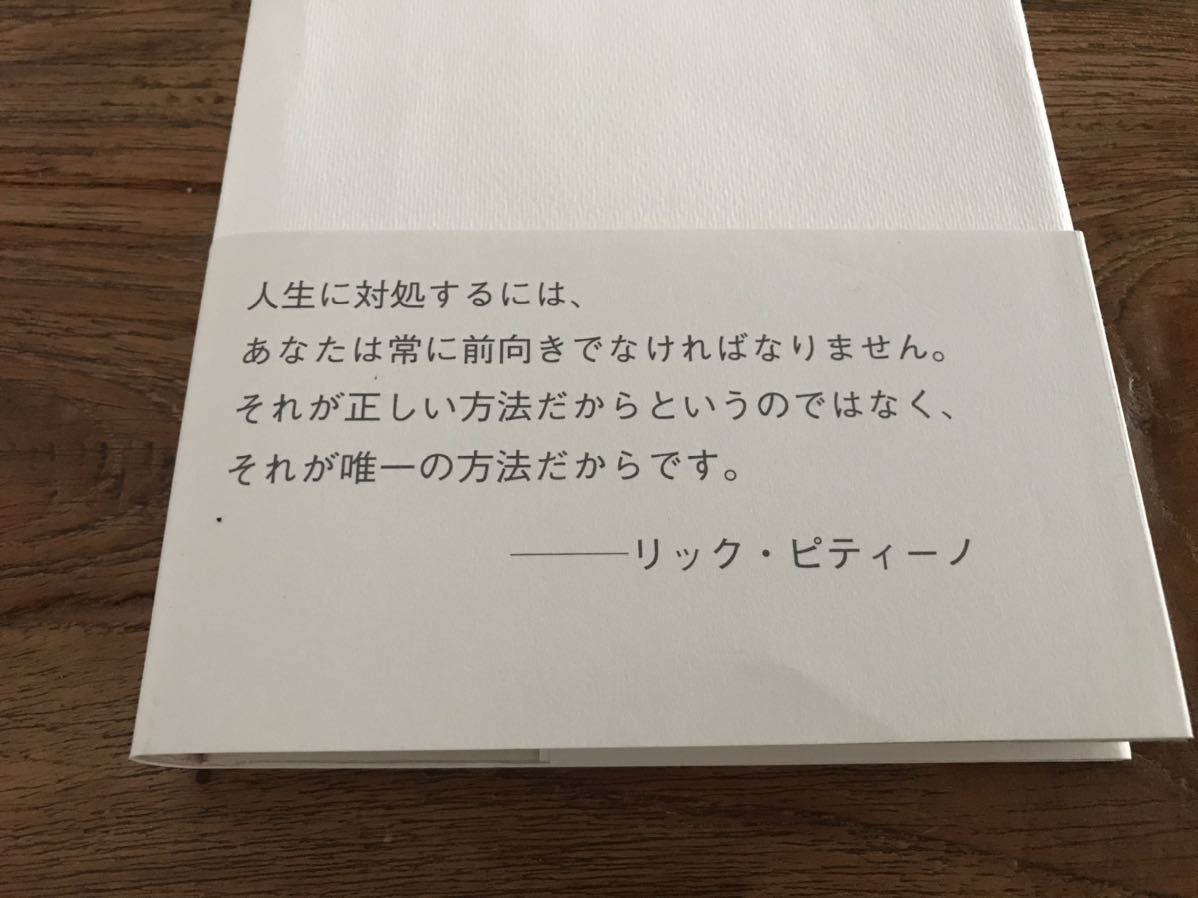 人生に対処するには、
あなたは常に前向きでなければなりません。
それが正しい方法だからというのではなく、
それが唯一の方法だからです。
———リック・ピティーノ